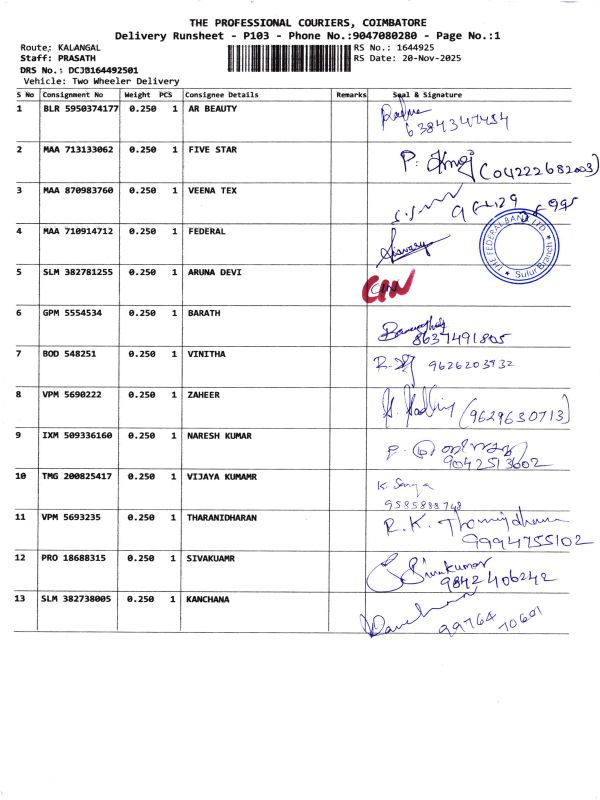 THE PROFESSIONAL COURIERS, COIMBATORE
Delivery Runsheet - P103 - Phone No.:9047080280 - Page No.:1
Route: KALANGAL RS No.: 1644925
Staff: PRASATH RS Date: 20-Nov-2025
DRS No.: DCJB164492501
Vehicle: Two Wheeler Delivery
S No Consignment No Weight PCS Consignee Details Remarks Seal & Signature
1 BLR 5950374177 0.250 1 AR BEAUTY
6384347454
2 MAA 713133062 0.250 1 FIVE STAR P. (04222682003)
3 MAA 870983760 0.250 1 VEENA TEX
4 MAA 710914712 0.250 1 FEDERAL
THE FEDERAL BANK LTD
Sulur Branch
5 SLM 382781255 0.250 1 ARUNA DEVI
6 GPM 5554534 0.250 1 BARATH
8637491805
7 BOD 548251 0.250 1 VINITHA 9626203932
8 VPM 5690222 0.250 1 ZAHEER (9629630713)
9 IXM 509336160 0.250 1 NARESH KUMAR
9042513602
10 TMG 200825417 0.250 1 VIJAYA KUMAMR K. Sarya
9585888748
11 VPM 5693235 0.250 1 THARANIDHARAN R.K.
9994755102
12 PRO 18688315 0.250 1 SIVAKUAMR Sivakumar
9842406242
13 SLM 382738005 0.250 1 KANCHANA
99764 70601